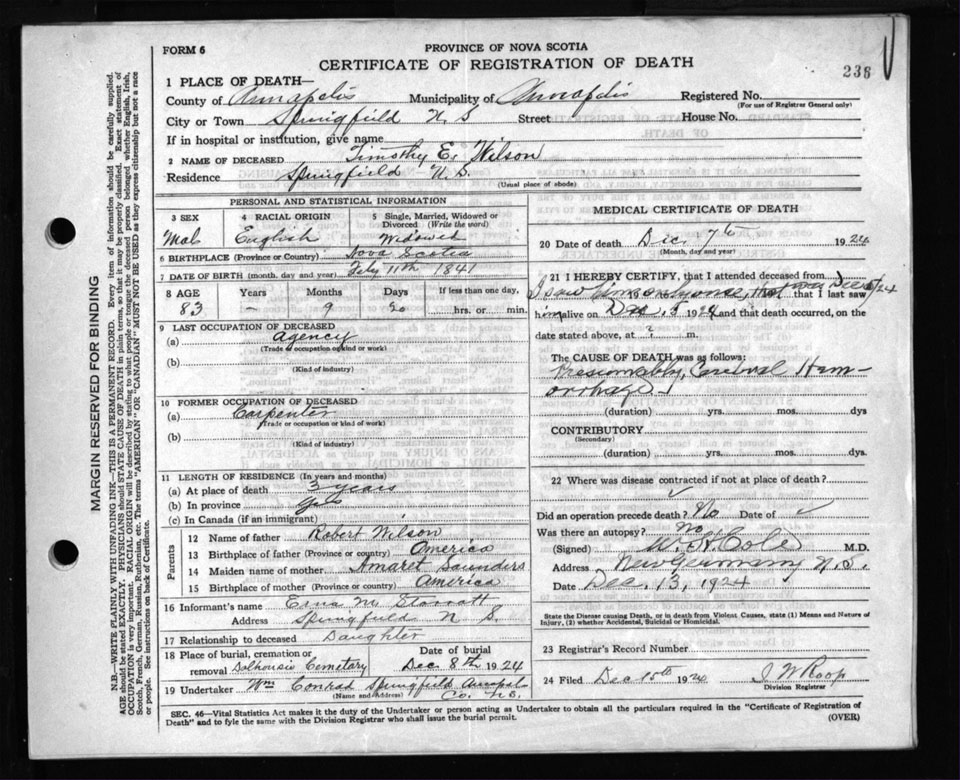 FORM 6
PROVINCE OF NOVA SCOTIA
CERTIFICATE OF REGISTRATION OF DEATH
236
1 PLACE OF DEATH—
County of Annapolis Municipality of Annapolis Registered No.
(For use of Registrar General only)
City or Town Springfield N.S Street House No.
If in hospital or institution, give name
2 NAME OF DECEASED Timothy E. Wilson
Residence Springfield N.S.
(Usual place of abode)
PERSONAL AND STATISTICAL INFORMATION
3 SEX 4 RACIAL ORIGIN 5 Single, Married, Widowed or
Divorced (Write the word)
Male English Widowed
6 BIRTHPLACE (Province or Country) Nova Scotia
7 DATE OF BIRTH (month, day and year) Feby 11th 1841
8 AGE Years Months Days If less than one day,
83 - 9 20 hrs. or min.
9 LAST OCCUPATION OF DECEASED
(a) agency
(Trade or occupation and kind or work)
(b)
(Kind of industry)
10 FORMER OCCUPATION OF DECEASED
(a) Carpenter
(Trade or occupation or kind of work)
(b)
(Kind of industry)
11 LENGTH OF RESIDENCE (In years and months)
(a) At place of death 3 years
(b) In province
(c) In Canada (if an immigrant)
Parents
12 Name of father Robert Wilson
13 Birthplace of father (Province or country) America
14 Maiden name of mother Amaret Saunders
15 Birthplace of mother (Province or country) America
16 Informant's name Erna M Starratt
Address Springfield N S.
17 Relationship to deceased Daughter
18 Place of burial, cremation or Date of burial
removal Dalhousie Cemetary Dec. 8th 1924
19 Undertaker Wm Conrad Springfield Annapolis
(Name and Address) Co. N.S.
MEDICAL CERTIFICATE OF DEATH
20 Date of death Dec. 7th 1924
(Month, day and year)
21 I HEREBY CERTIFY, that I attended deceased from
I saw him once, that was Dec 5/24
19 to 19 that I last saw
him alive on Dec. 5 1924 and that death occurred, on the
date stated above, at ? m.
The CAUSE OF DEATH was as follows:
Presumably, Cerebral Hem-
orrhage
(duration) yrs. mos. dys
CONTRIBUTORY
(Secondary)
(duration) yrs. mos. dys.
22 Where was disease contracted if not at place of death?
Did an operation precede death? No Date of
Was there an autopsy? No
(Signed) W. H. Cole M.D.
Address New Germany N.S.
Date Dec. 13, 1924
State the Disease causing Death, or in deaths from Violent Causes, state (1) Means and Nature of
Injury, (2) whether Accidental, Suicidal or Homicidal.
23 Registrar's Record Number
24 Filed Dec 15th 1924 J W Roop
Division Registrar
SEC. 46—Vital Statistics Act makes it the duty of the Undertaker or person acting as Undertaker to obtain all the particulars required in the "Certificate of Registration of
Death" and to fyle the same with the Division Registrar who shall issue the burial permit.
(OVER)
MARGIN RESERVED FOR BINDING
N.B.—WRITE PLAINLY WITH UNFADING INK—THIS IS A PERMANENT RECORD. Every item of information should be carefully supplied.
AGE should be stated EXACTLY. PHYSICIANS should STATE CAUSE OF DEATH in plain terms, so that it may be properly classified. Exact statement of
OCCUPATION is very important. RACIAL ORIGIN will be described by stating to what people or tongue the deceased person belonged whether English, Irish,
Scotch, French, German, Russian, Ruthenian, etc. The terms "AMERICAN" OR "CANADIAN" MUST NOT BE USED as they express citizenship but not a race
or people. See instructions on back of Certificate.